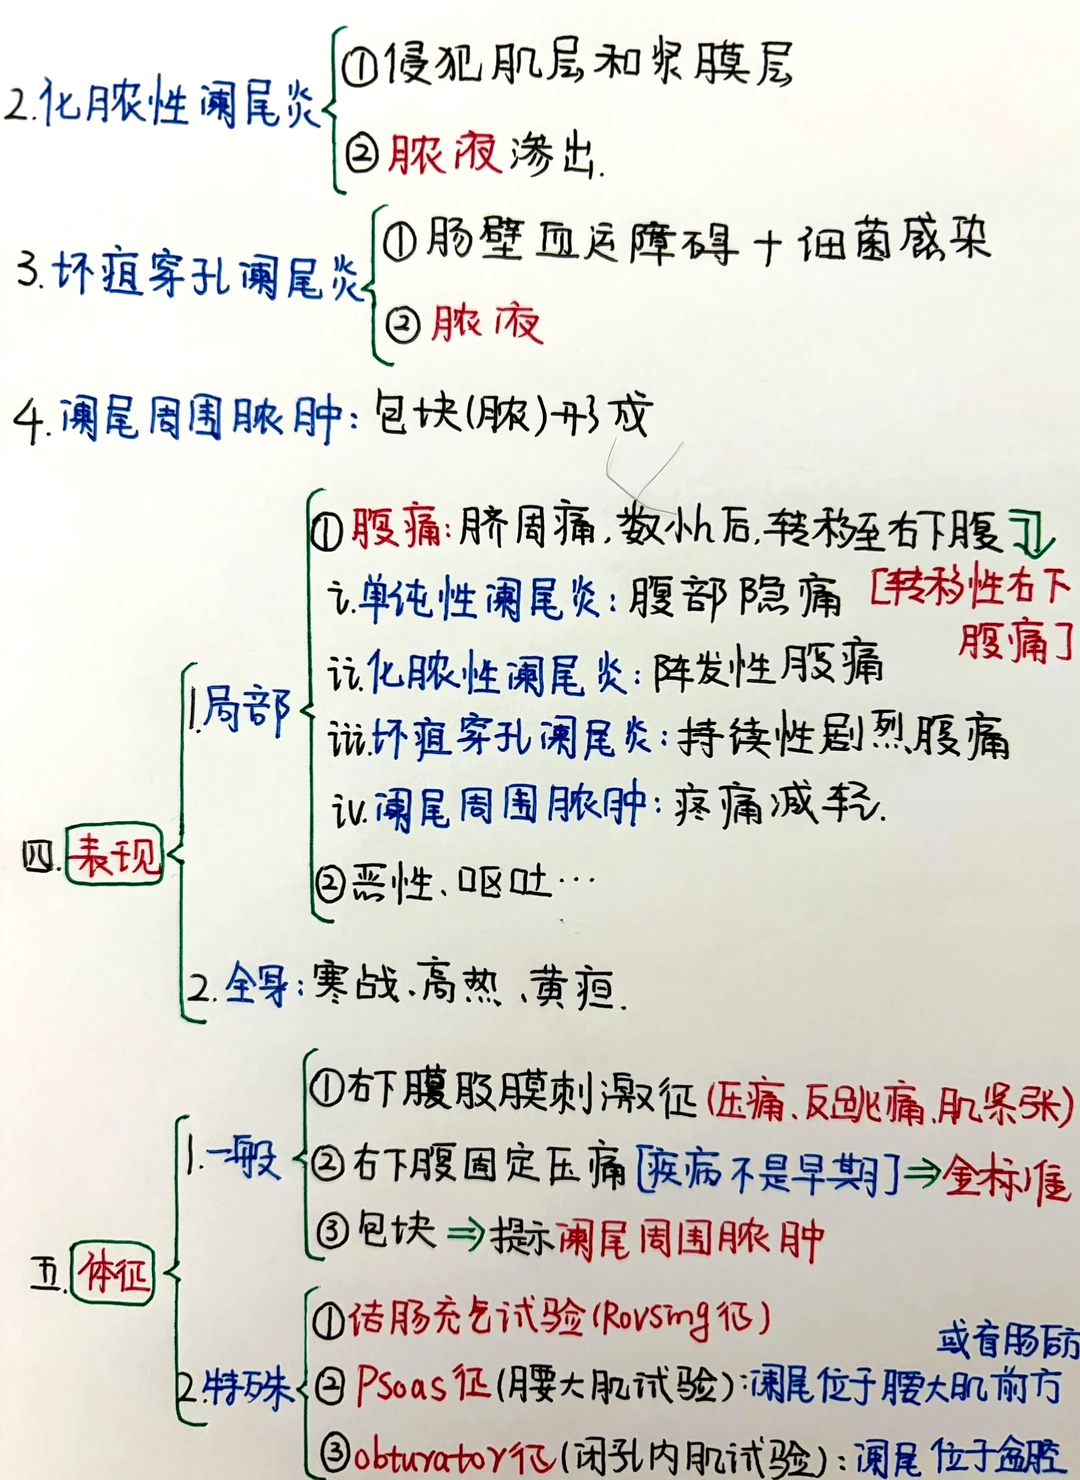 ①侵犯肌层和浆膜层
2.化脓性阑尾炎
②脓液渗出.
①肠壁血运障碍+细菌感染
3.坏疽穿孔阑尾炎
②脓液
4.阑尾周围脓肿:包块(脓)形成
①腹痛:脐周痛,数小h后,转移至右下腹
i.单纯性阑尾炎:腹部隐痛 [转移性右下
腹痛]
ii.化脓性阑尾炎:阵发性腹痛
1.局部
iii.坏疽穿孔阑尾炎:持续性剧烈腹痛
iv.阑尾周围脓肿:疼痛减轻.
四.表现
②恶性、呕吐…
2.全身:寒战、高热、黄疸.
①右下腹腹膜刺激征(压痛、反跳痛、肌紧张)
1.一般
②右下腹固定压痛[疾病不是早期]⇒金标准
③包块⇒提示阑尾周围脓肿
五.体征
①结肠充气试验(Rovsing征)
或盲肠后方
2.特殊
②Psoas征(腰大肌试验):阑尾位于腰大肌前方
③obturator征(闭孔内肌试验):阑尾位于盆腔